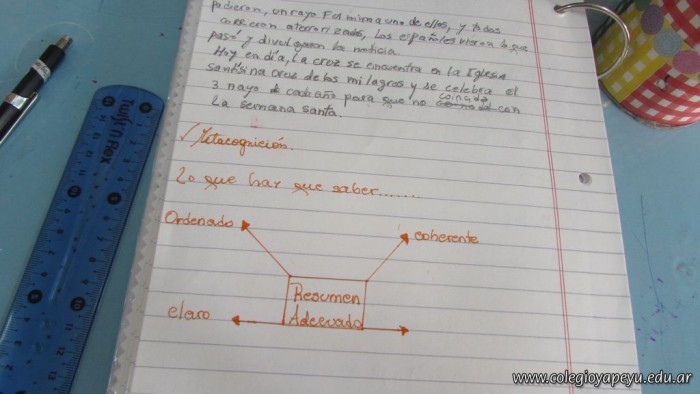 pudieron, un rayo Fulmino a uno de ellos, y todos
corrieron aterrorizados, los españoles vieron lo que
paso y divulgaron la noticia.
Hoy en día, La cruz se encuentra en la Iglesia
Santísina cruz de los milagros y se celebra el
3 mayo de cada año para que no coincida con
La semana santa.
✓Metacognición.
Lo que hay que saber.......
Ordenado
coherente
Resumen
Adecuado
claro
www.colegioyapeyu.edu.ar